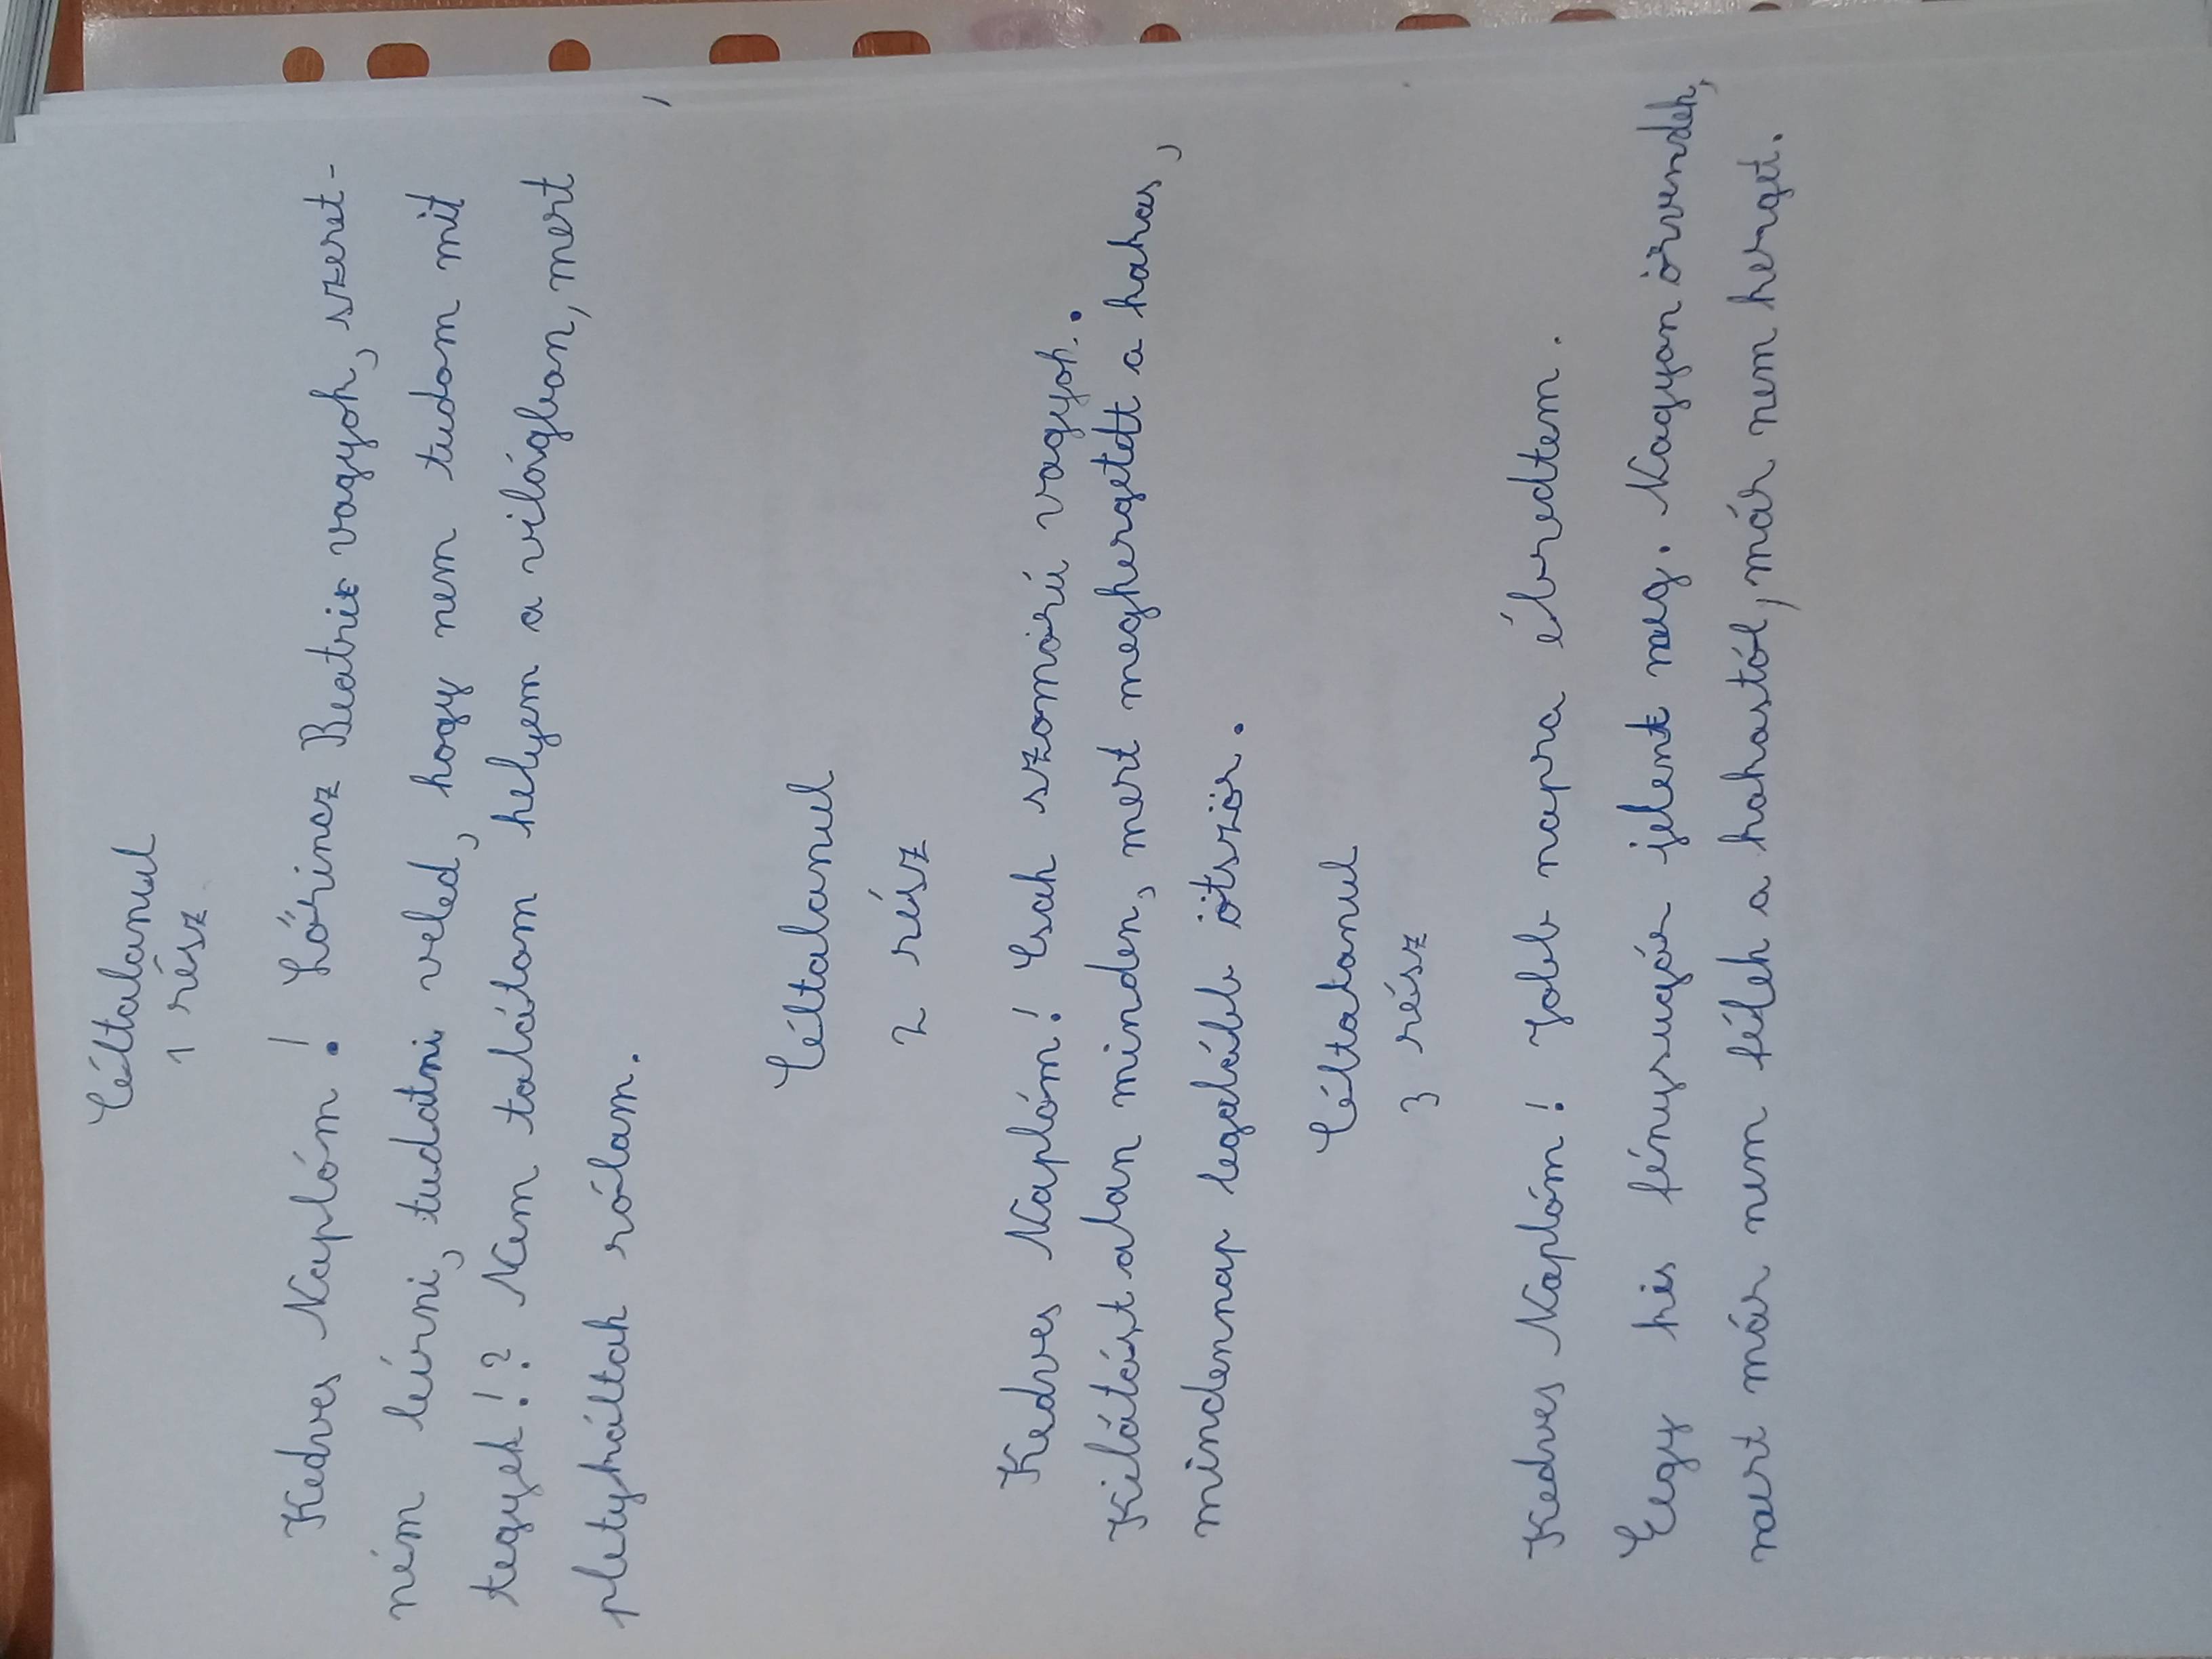 Céltalanul
1 rész
Kedves Naplóm! Lőrincz Beatrix vagyok, szeret-
ném leírni, tudatni veled, hogy nem tudom mit
tegyek!? Nem találtom helyem a világban, mert
pletykáltak rólam.
Céltalanul
2 rész
Kedves Naplóm! Csak szomorú vagyok.
Kilátástalan minden, mert meghergetett a kakas,
mindennap legalább ötször.
Céltalanul
3 rész
Kedves Naplóm! Jobb napra ébredtem.
Egy kis fénysugár jelent meg. Nagyon örvendek,
mert már nem félek a kakastól, már nem kerget.